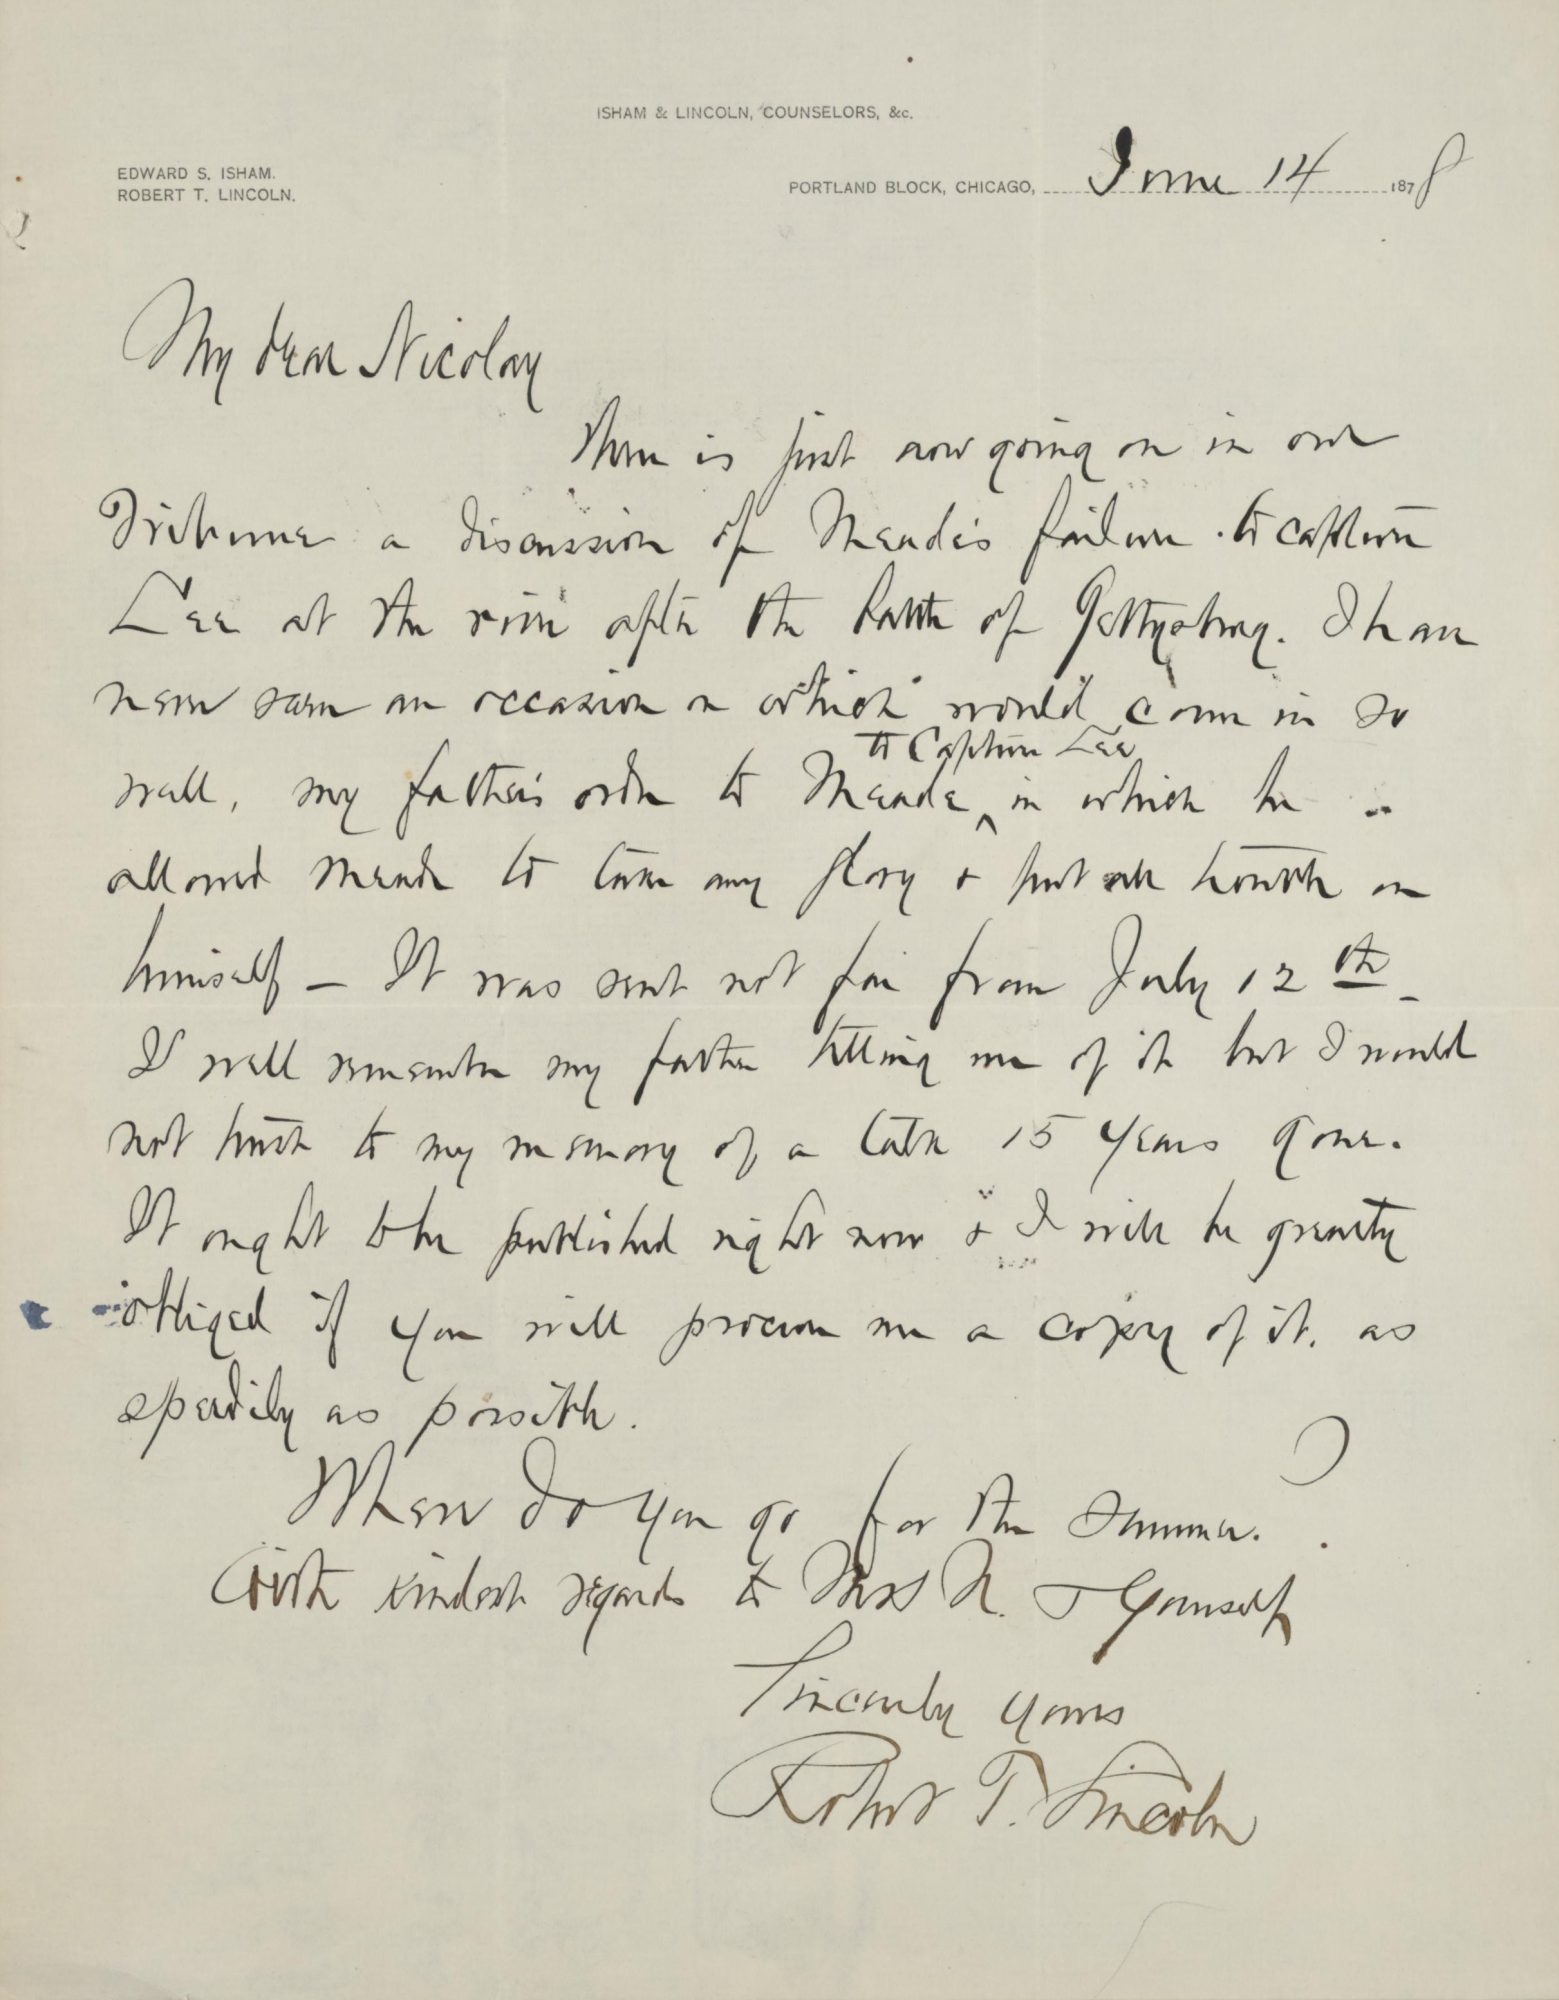 ISHAM & LINCOLN, COUNSELORS, &c.
EDWARD S. ISHAM.
ROBERT T. LINCOLN.
PORTLAND BLOCK, CHICAGO, June 14 1878
My dear Nicolay
There is just now going on in our
Tribune a discussion of Meade's failure to capture
Lee at the river after the battle of Gettysburg. I have
never seen an occasion on which would come in so
to Capture Lee
well, my father's order to Meade ^ in which he
allowed Meade to take any glory & put all trouble on
himself – It was sent not far from July 12th –
I well remember my father telling me of it but I would
not trust to my memory of a talk 15 years gone.
It ought to be published right now & I will be greatly
obliged if you will procure me a copy of it. as
speedily as possible.
When do you go for the summer?
With kindest regards to Mrs N. & Yourself
Sincerely yours
Robert T. Lincoln